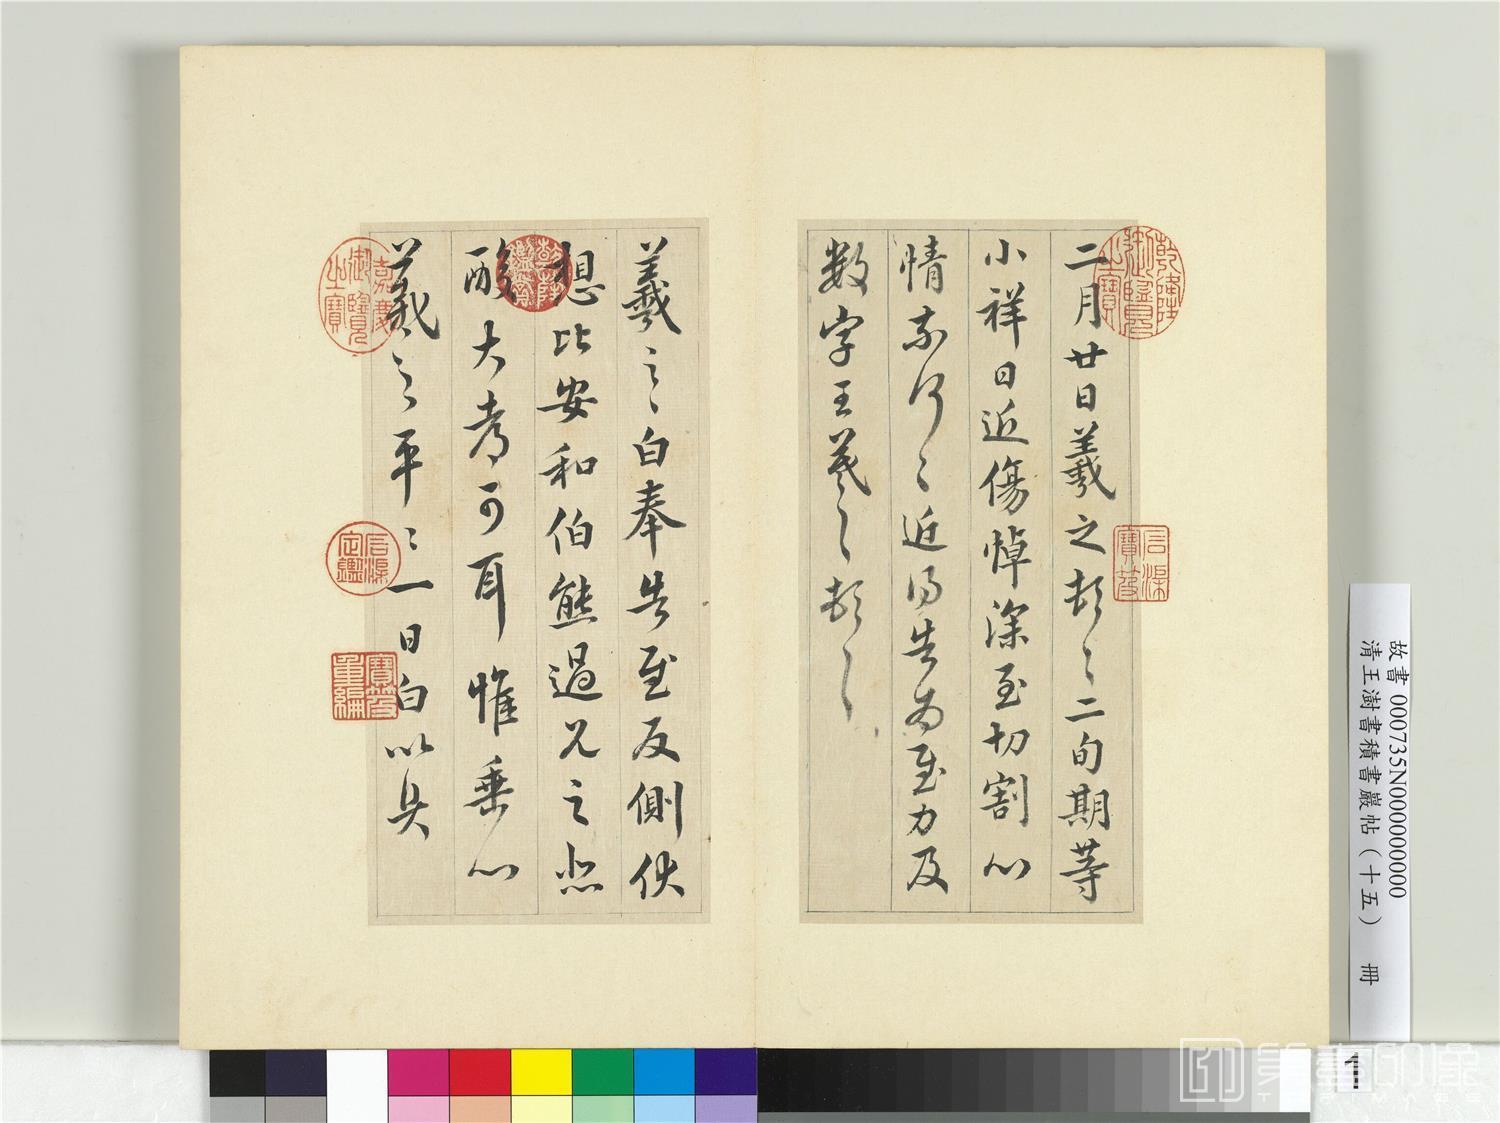 二月廿日羲之頓〻二旬期等
小祥日近傷悼深至切割心
情奈何〻近得告為慰力及
數字王羲之頓〻
羲之〻白奉告慰反側伏
想比安和伯熊過兄之悲
酸大孝可耳惟垂心
羲之平〻一日白以具
乾隆御覽之寶
石渠寶笈
乾隆鑑賞
嘉慶御覽之寶
石渠定鑑
寶笈重編
故書 000735N000000000
清王澍書積書巖帖（十五） 冊
1